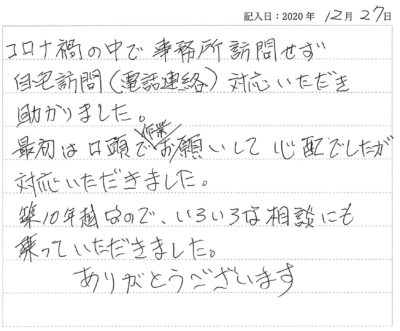 記入日：2020年 12月 27日
コロナ禍の中で 事務所訪問せず
自宅訪問(電話連絡)対応いただき
助かりました。
作業
最初は口頭でお願いして 心配でしたが
対応いただきました。
築10年越なので、いろいろな相談にも
乗っていただきました。
ありがとうございます